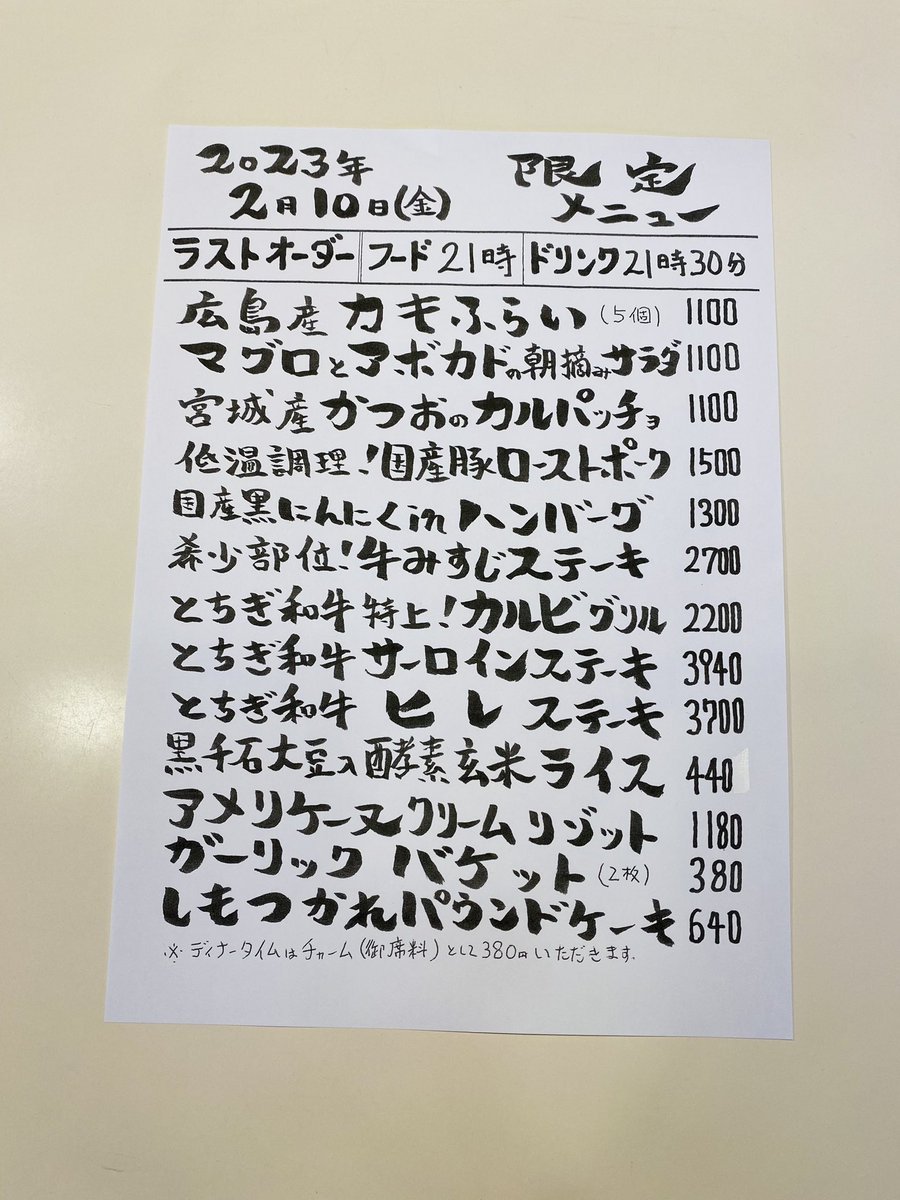 2023年 限定
2月10日(金) メニュー
ラストオーダー フード21時 ドリンク21時30分
広島産カキふらい(5個) 1100
マグロとアボカドの朝摘みサラダ 1100
宮城産かつおのカルパッチョ 1100
低温調理!国産豚ローストポーク 1500
国産黒にんにくinハンバーグ 1300
希少部位!牛みすじステーキ 2700
とちぎ和牛特上!カルビグリル 2200
とちぎ和牛サーロインステーキ 3940
とちぎ和牛ヒレステーキ 3700
黒千石大豆入酵素玄米ライス 440
アメリケーヌクリームリゾット 1180
ガーリックバケット(2枚) 380
しもつかれパウンドケーキ 640
※ディナータイムはチャーム(御席料)として380円いただきます.